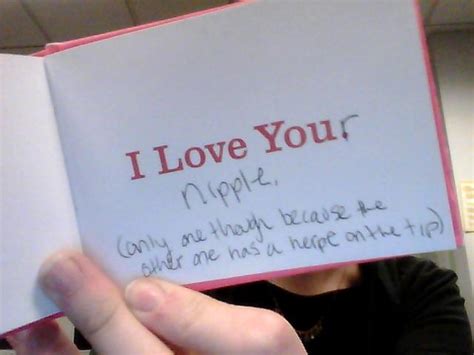 I Love Your
nipple.
(only one though because the
other one has a herpe on the tip)